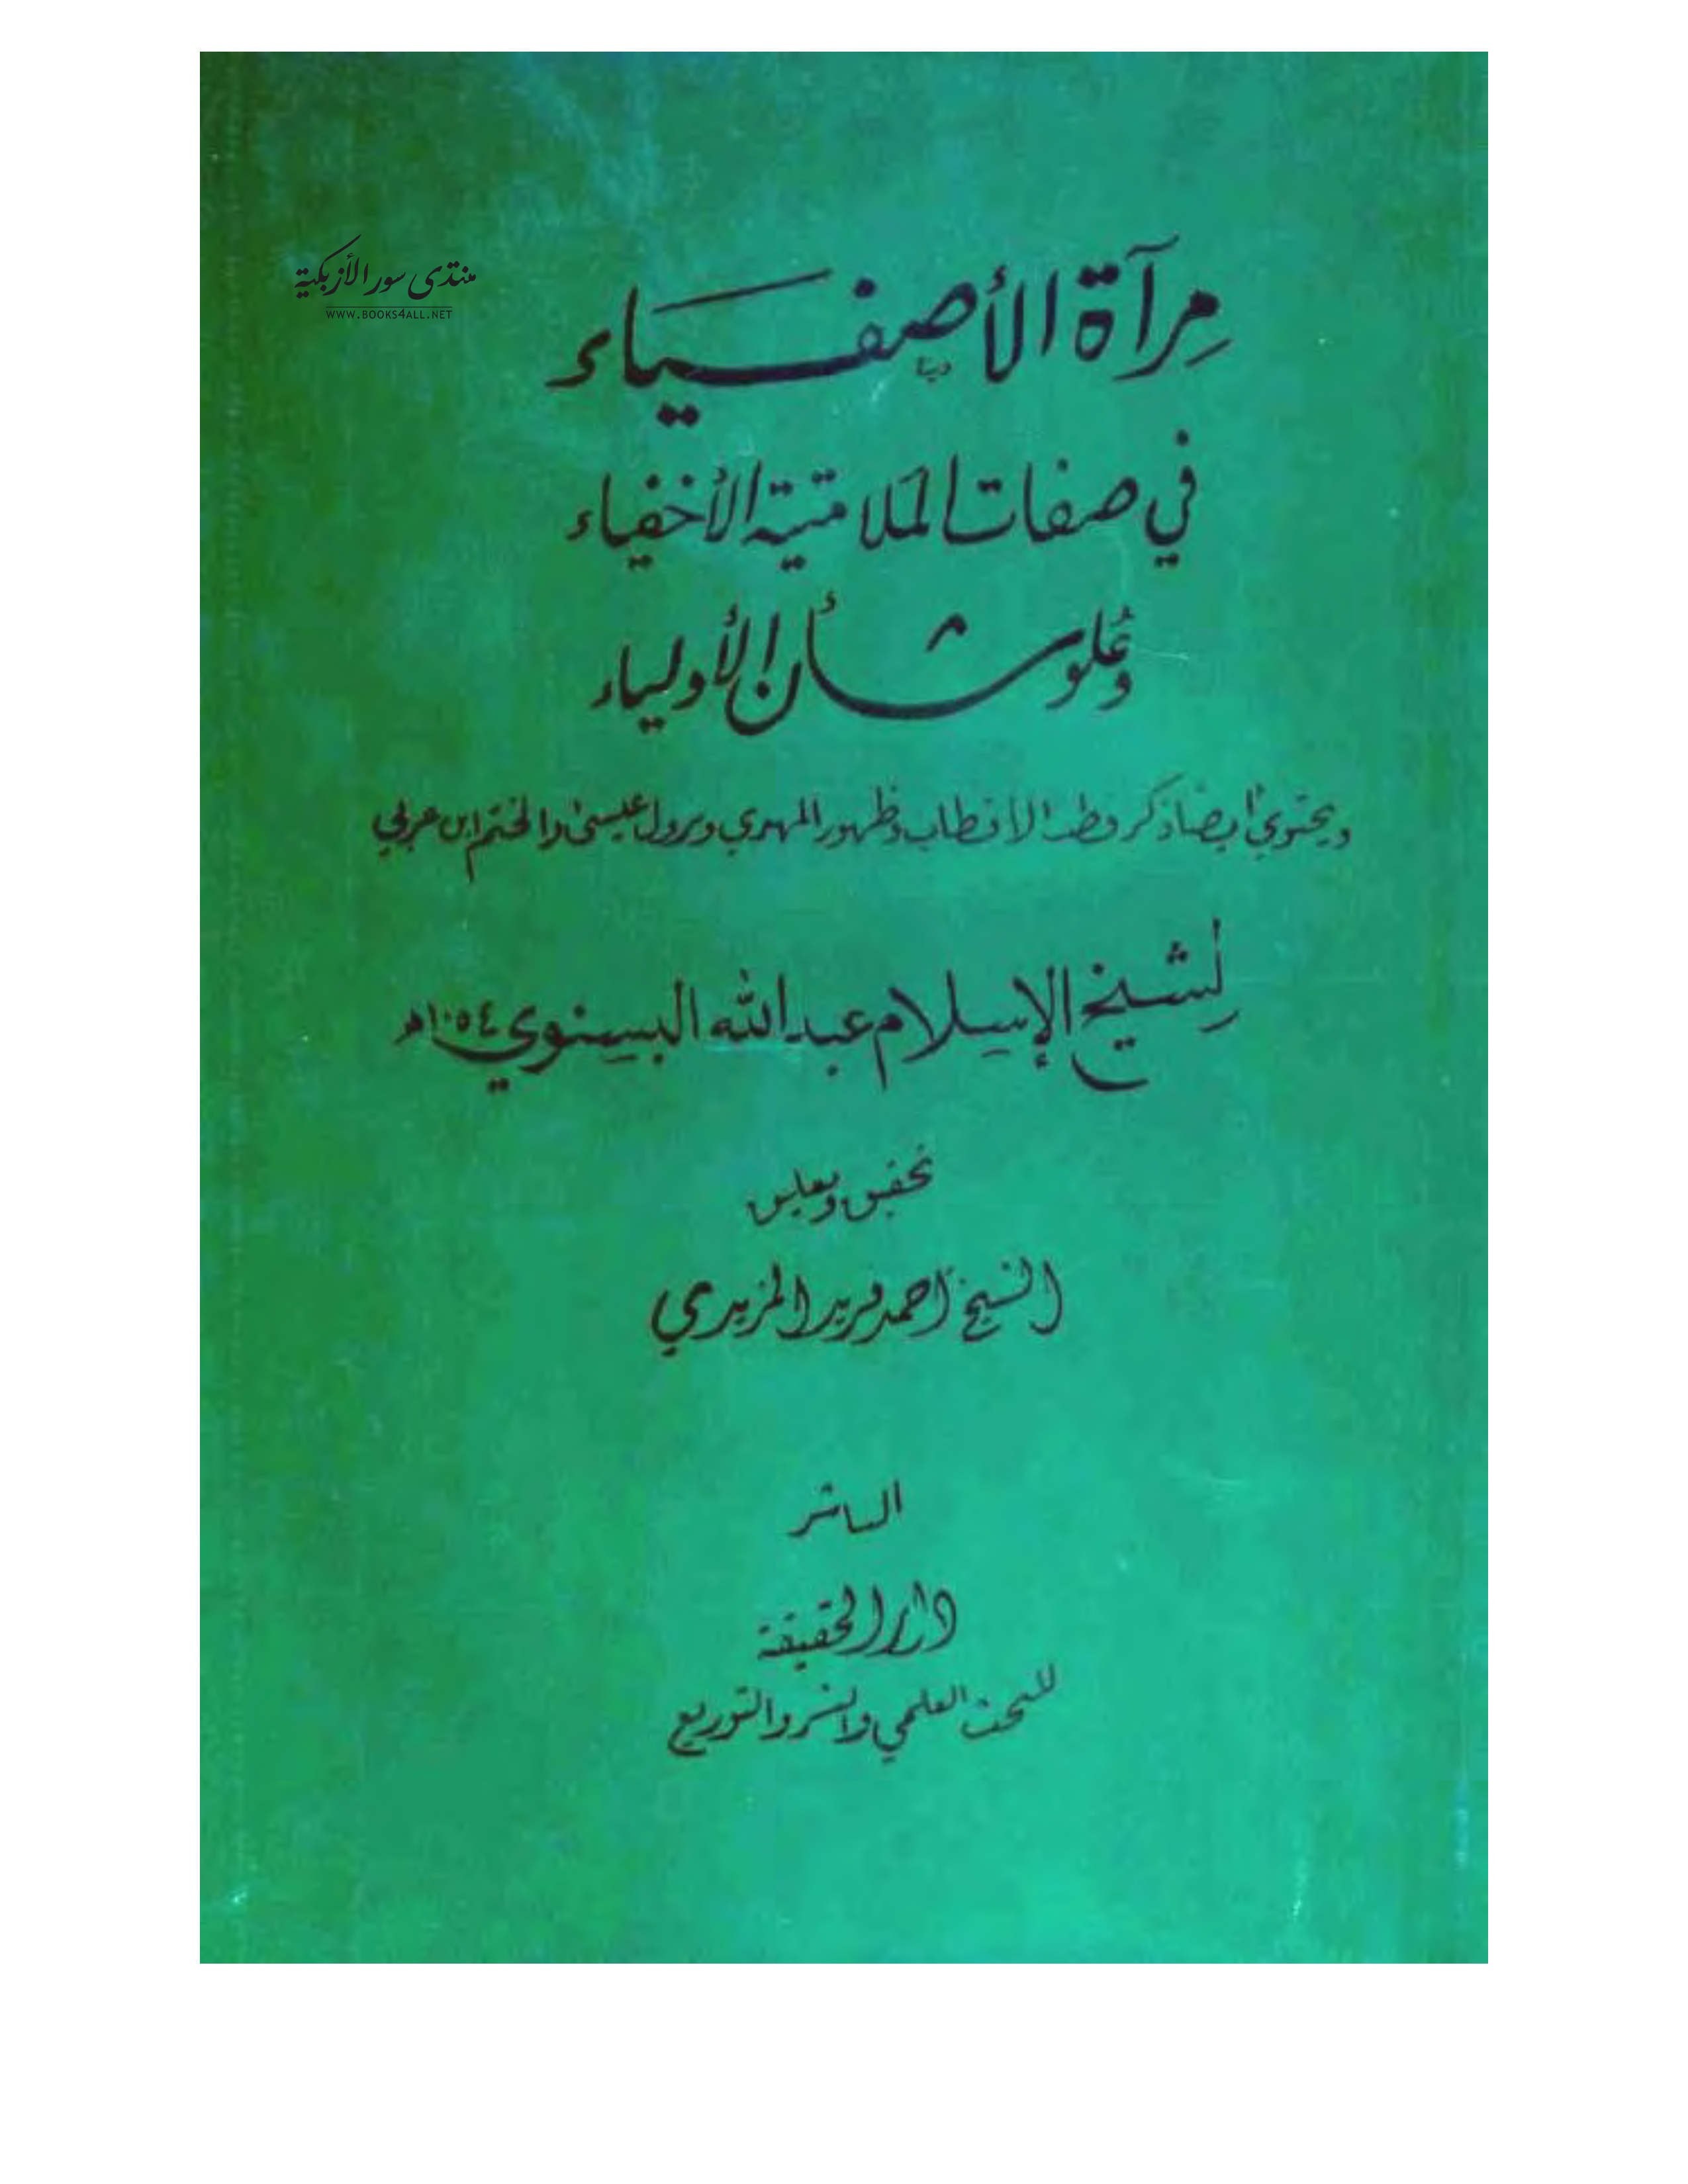 منتدى سور الأزبكية
WWW.BOOKS4ALL.NET
مرآة الأصفياء
في صفات الملامتية الأخفياء
وعلو شأن الأولياء
ويحتوي أيضا ذكر قطب الأقطاب وظهور المهدي ونزول عيسى والختم ابن عربي
لشيخ الإسلام عبد الله البسنوي ١٠٥٤هـ
تحقيق وتعليق
الشيخ أحمد فريد المزيدي
الناشر
دار الحقيقة
للبحث العلمي والنشر والتوزيع